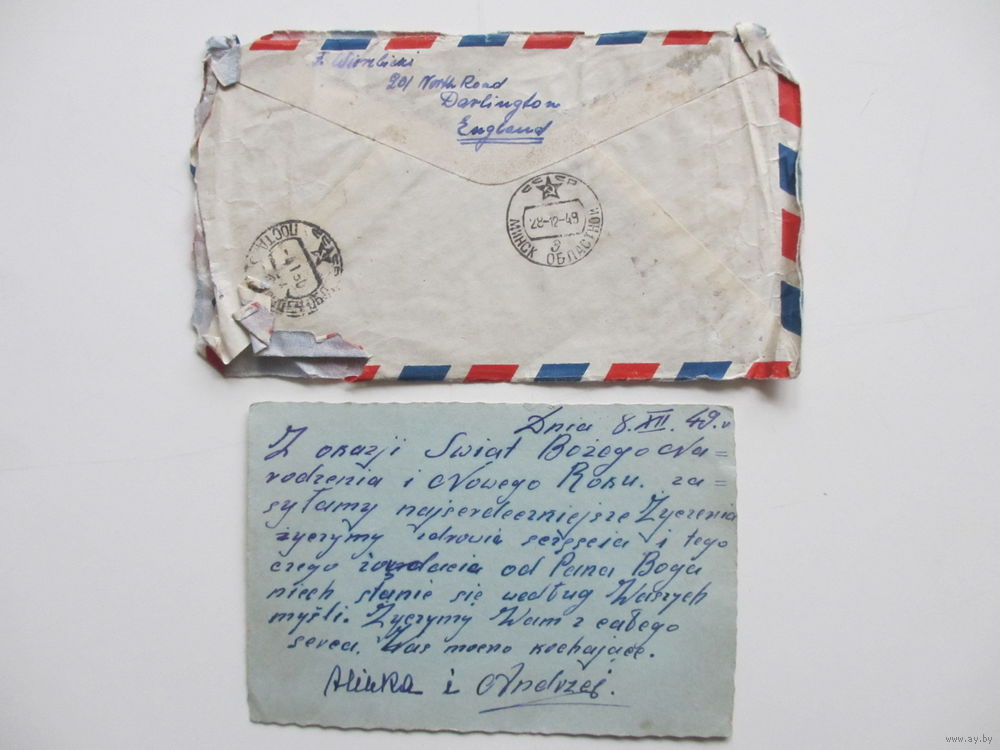 201 North Road
Darlington
England
СССР
28-12-49
МИНСК ОБЛАСТНОЙ
3
ПОСТА
СССР
-4 1 50
Dnia 8. XII. 49. r
Z okazji Swiąt Bożego Na=
rodzenia i Nowego Roku. za=
syłamy najserdeczniejsze Życzenia
życzymy zdrowia szczęscia i tego
czego żondacia od Pana Boga
niech stanie się według Waszych
myśli. Życzymy Wam z całego
serca. Was mocno kochające.
Alinka i Andrzej.
www.ay.by